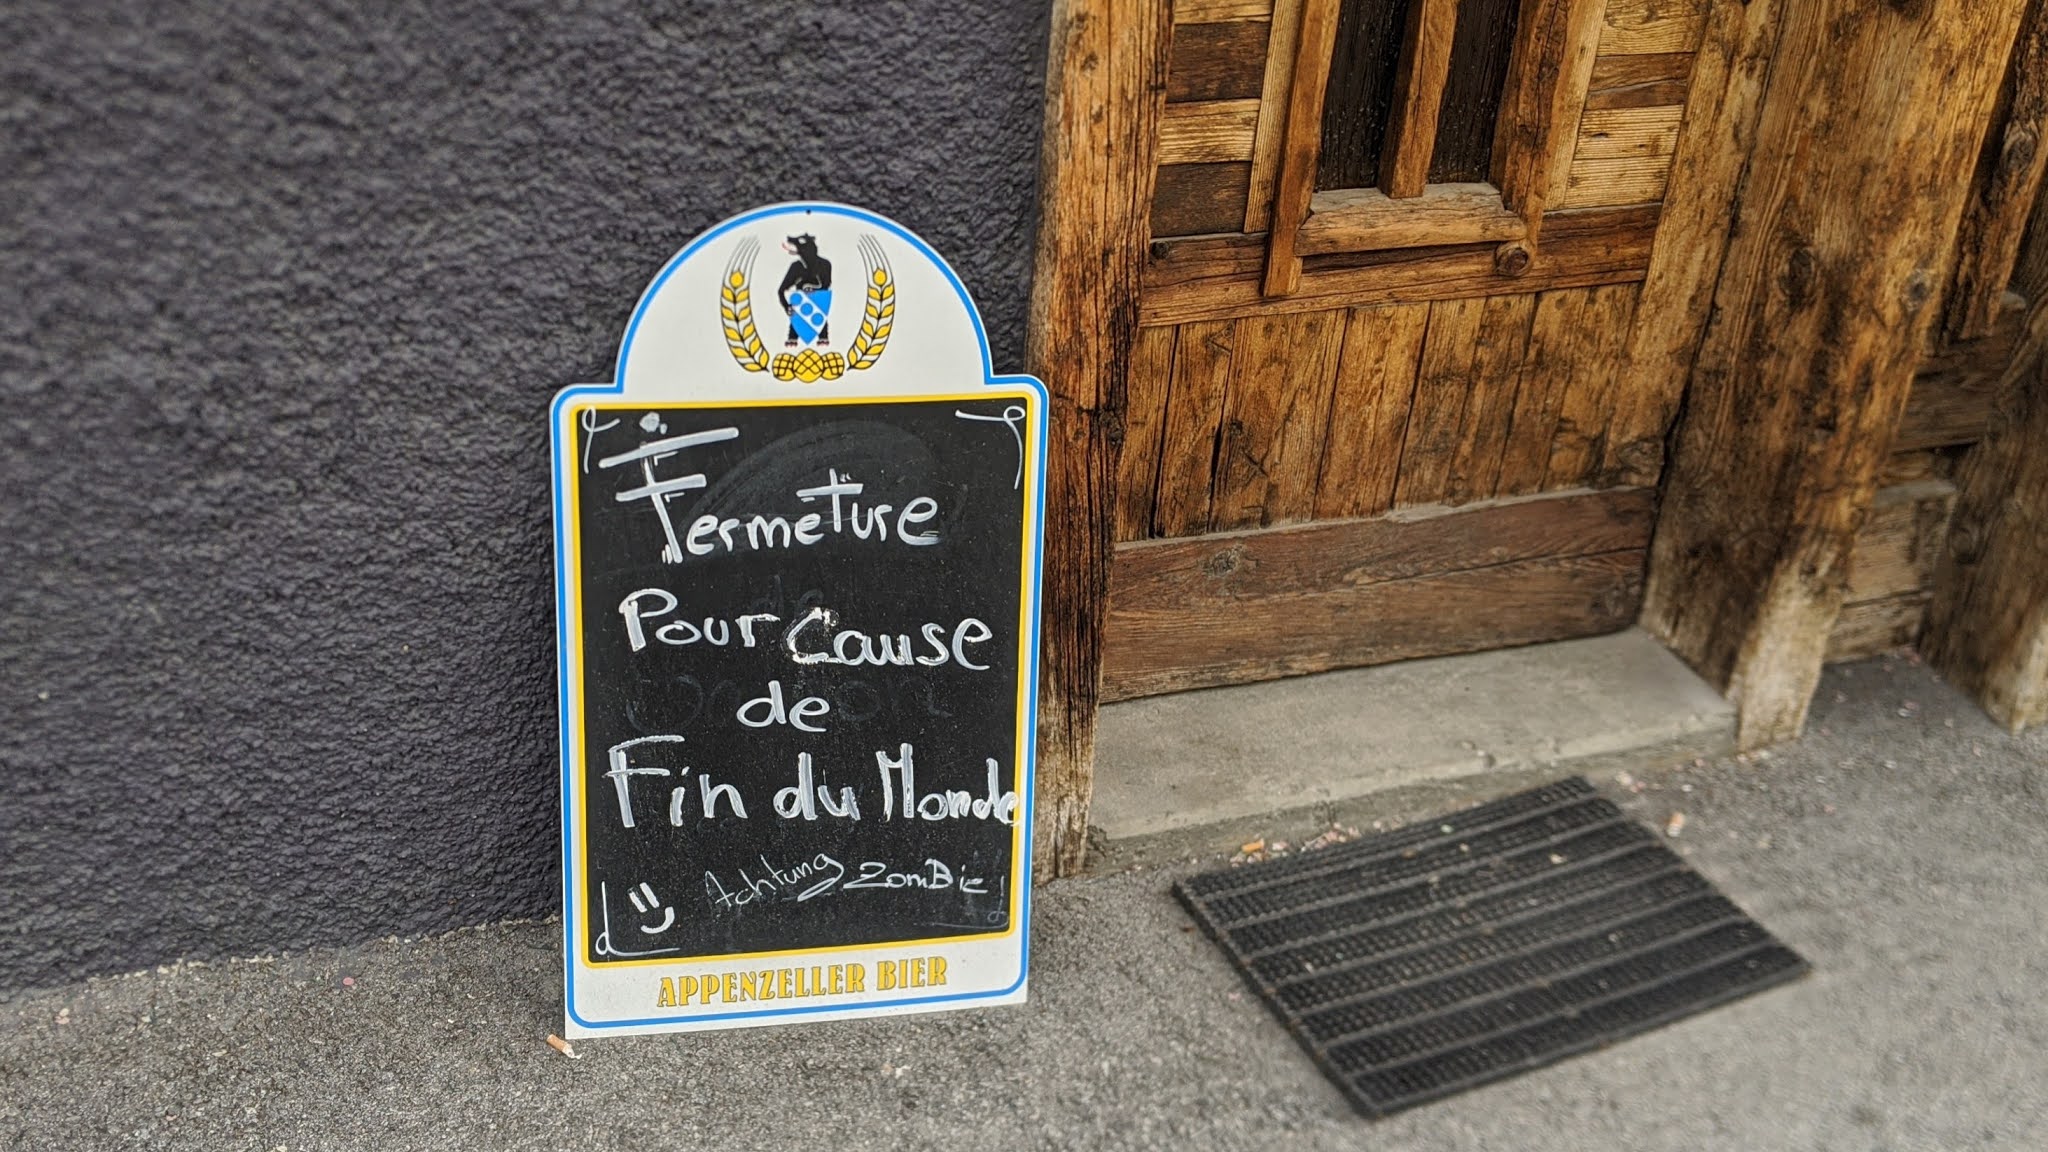 Fermeture
Pour Cause
de
Fin du Monde
Achtung ZomBie!
APPENZELLER BIER